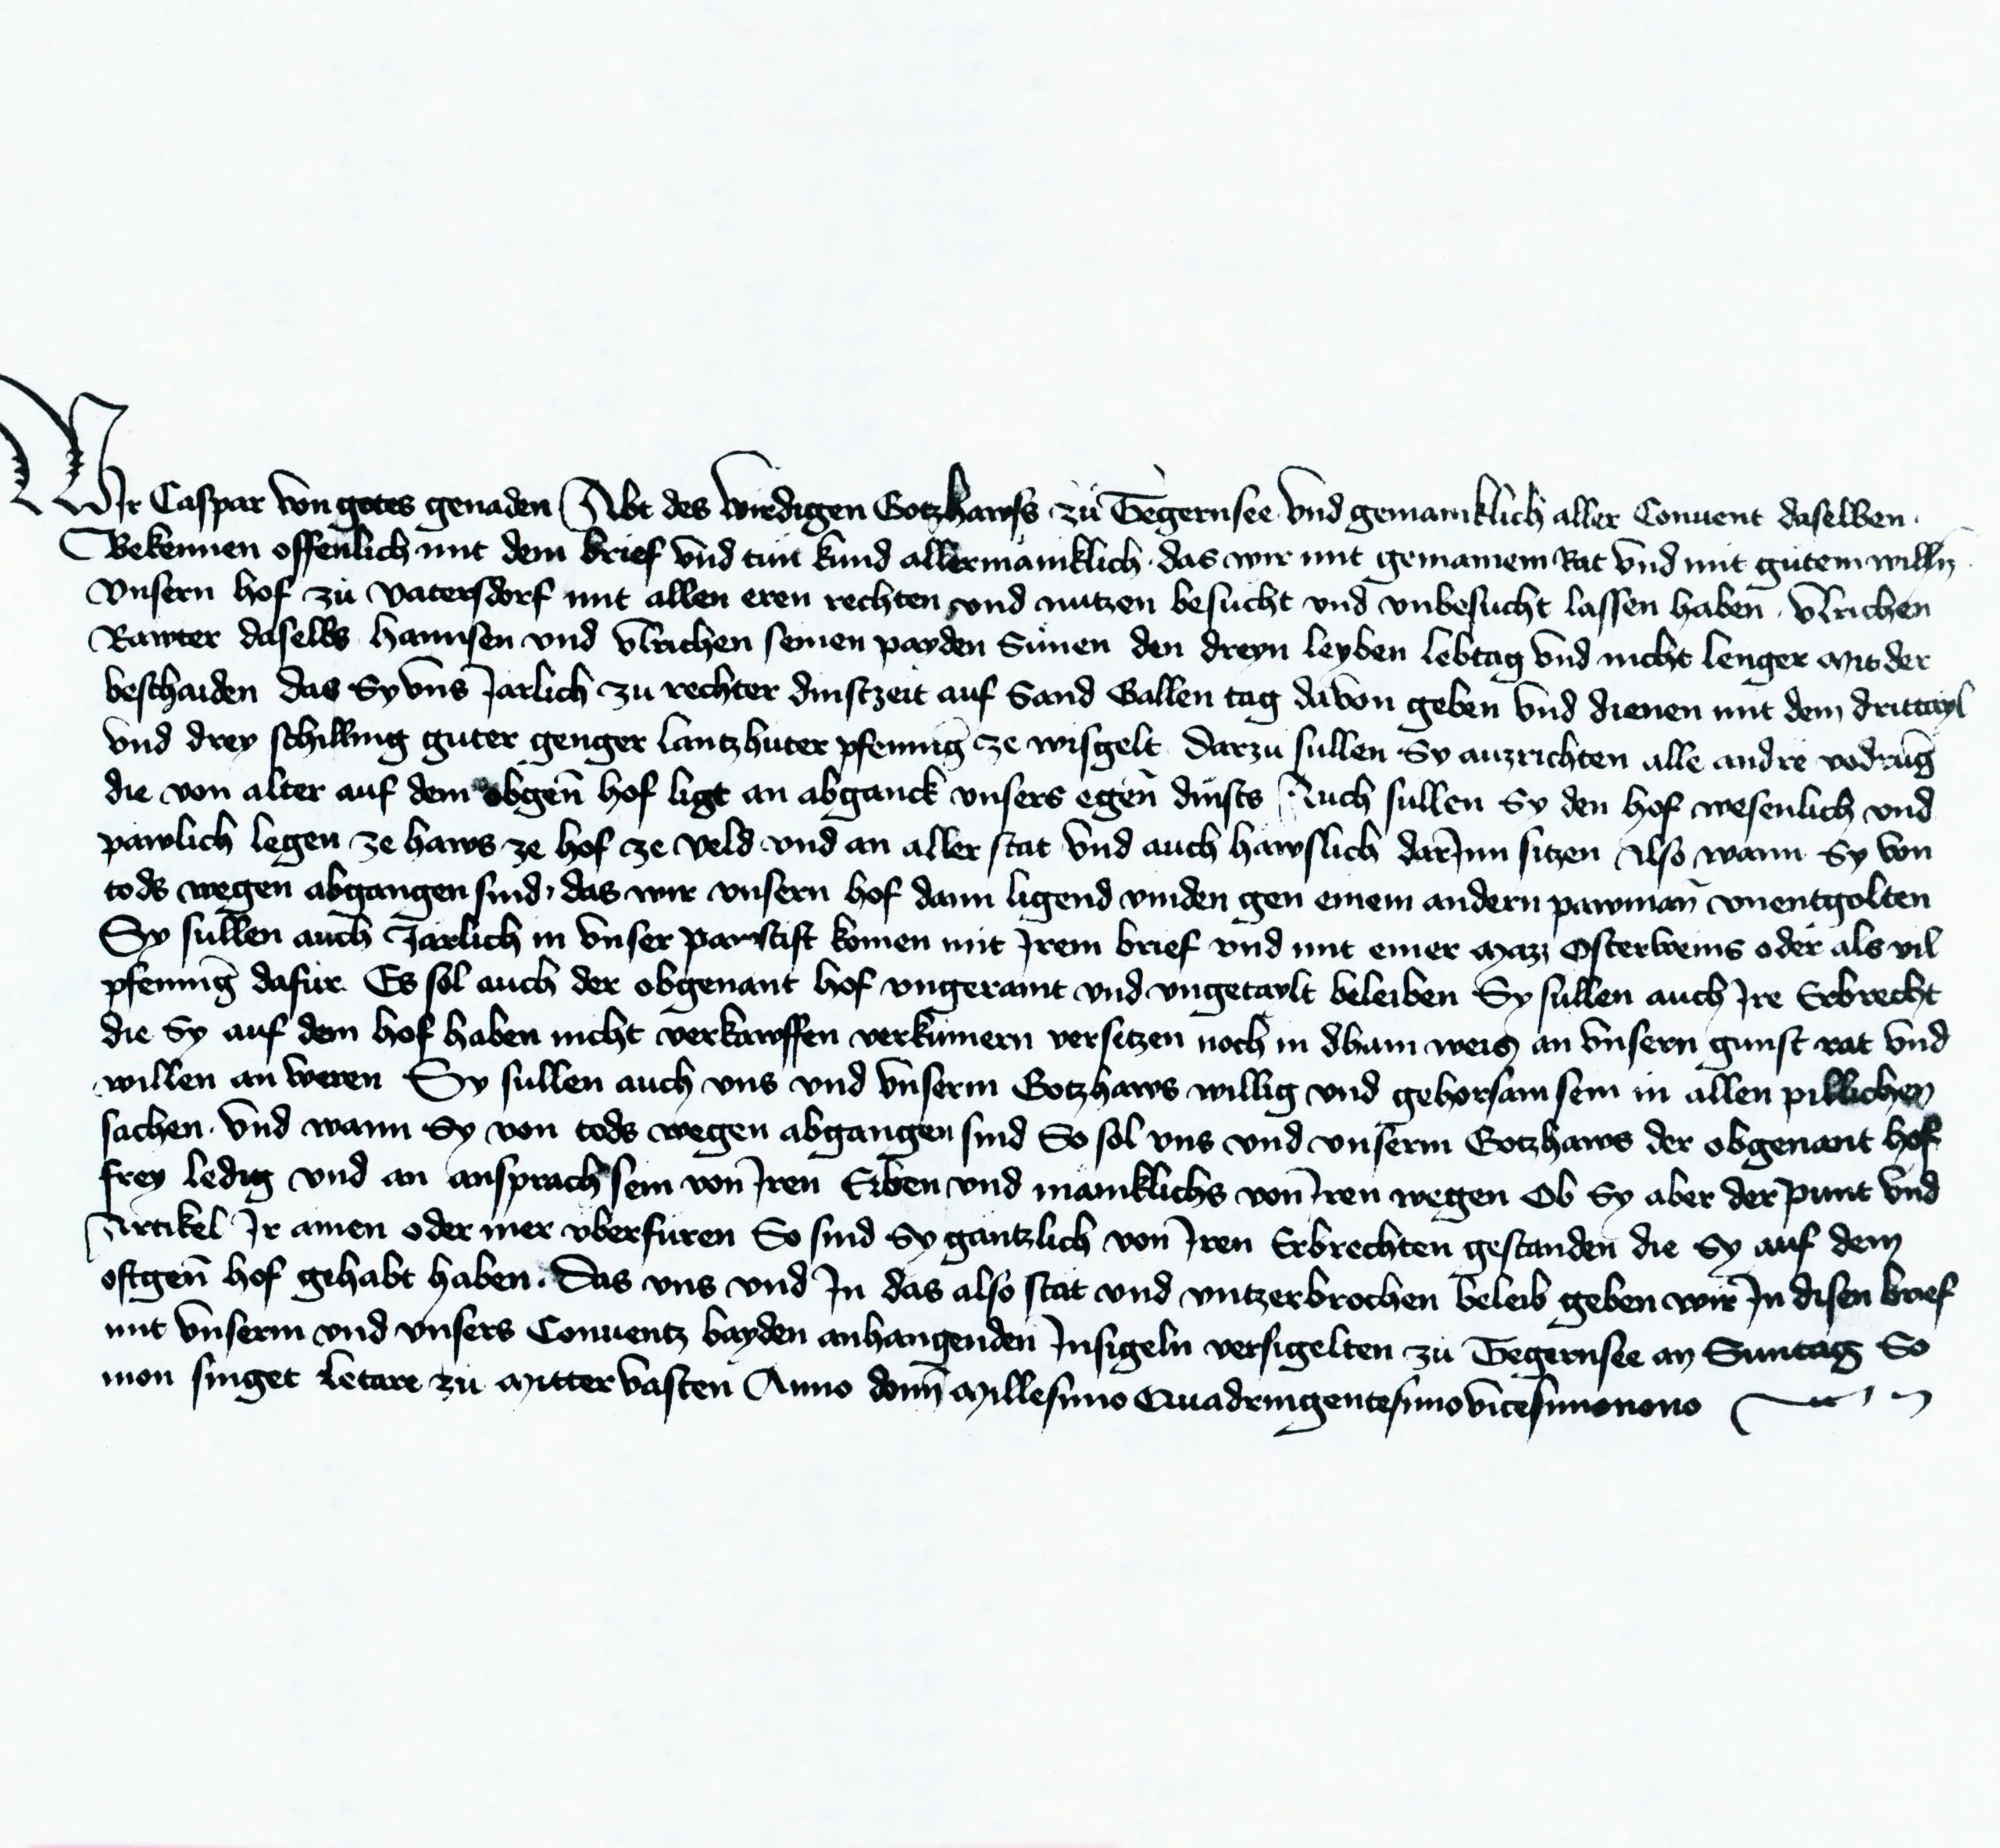 Wir Caspar von gotes genaden Abt des wirdigen Gotzhawss zu Tegernsee vnd gemainklich aller Conuent daselben.
Bekennen offenlich mit dem brief vnd tun kund allermainklich. das wir mit gemainem Rat vnd mit gutem willn
vnsern hof zu Vatersdorf mit allen eren rechten vnd nutzen besucht vnd vnbesucht lassen haben. Vlrichen
Rawter daselbs hannsen vnd Vlrichen seinen payden Sünen den dreyn leyben lebtag vnd nicht lenger Mit der
beschaiden das Sy vns Jarlich zu rechter dinstzeit auf Sand Gallen tag dauon geben vnd dienen mit dem drittayl
vnd drey schilling guter genger lantzhuter pfenning ze wisgelt Darzu sullen Sy auzrichten alle andre vodrug̃
die von alter auf dem obgen̄ hof ligt an abganck vnsers egen̄ dinsts Auch sullen Sy den hof wesenlich vnd
pawlich legen ze haws ze hof ze veld vnd an aller stat vnd auch hawslich darJnn sitzen Also wann Sy von
tods wegen abgangen sind, das wir vnsern hof dann ligend vinden gen einem andern pawman̄ vnentgolten
Sy sullen auch Jarlich in vnser pawstift komen mit Jrem brief vnd mit einer Mazz Osterweins oder als vil
pfennig̃ dafür. Es sol auch der obgenant hof vngeramt vnd vngetaylt beleiben Sy sullen auch Jre Erbrecht
die Sy auf dem hof haben nicht verkawffen verkümern versetzen noch in dhain weis an vnsern gunst rat vnd
willen an weren Sy sullen auch vns vnd vnserm Gotzhaws willig vnd gehorsam sein in allen pillichen
sachen. Vnd wann Sy von tods wegen abgangen sind So sol vns vnd vnserm Gotzhaws der obgenant hof
frey ledig vnd an ansprach sein von Jren Erben vnd mainklichs von Jren wegen Ob Sy aber der punt vnd
Artikel Jr ainen oder mer vberfüren So sind Sy gäntzlich von Jren Erbrechten gestanden die Sy auf dem
oftgen̄ hof gehabt haben. Das vns vnd Jn das also stät vnd vntzerbrochen beleib geben wir Jn disen brief
mit vnserm vnd vnsers Conuentz bayden anhangenden Jnsigeln versigelten zu Tegernsee an Suntag So
mon singet Letare zu Mitteruasten Anno domī Millesimo Quadringentesimo vicesimonono